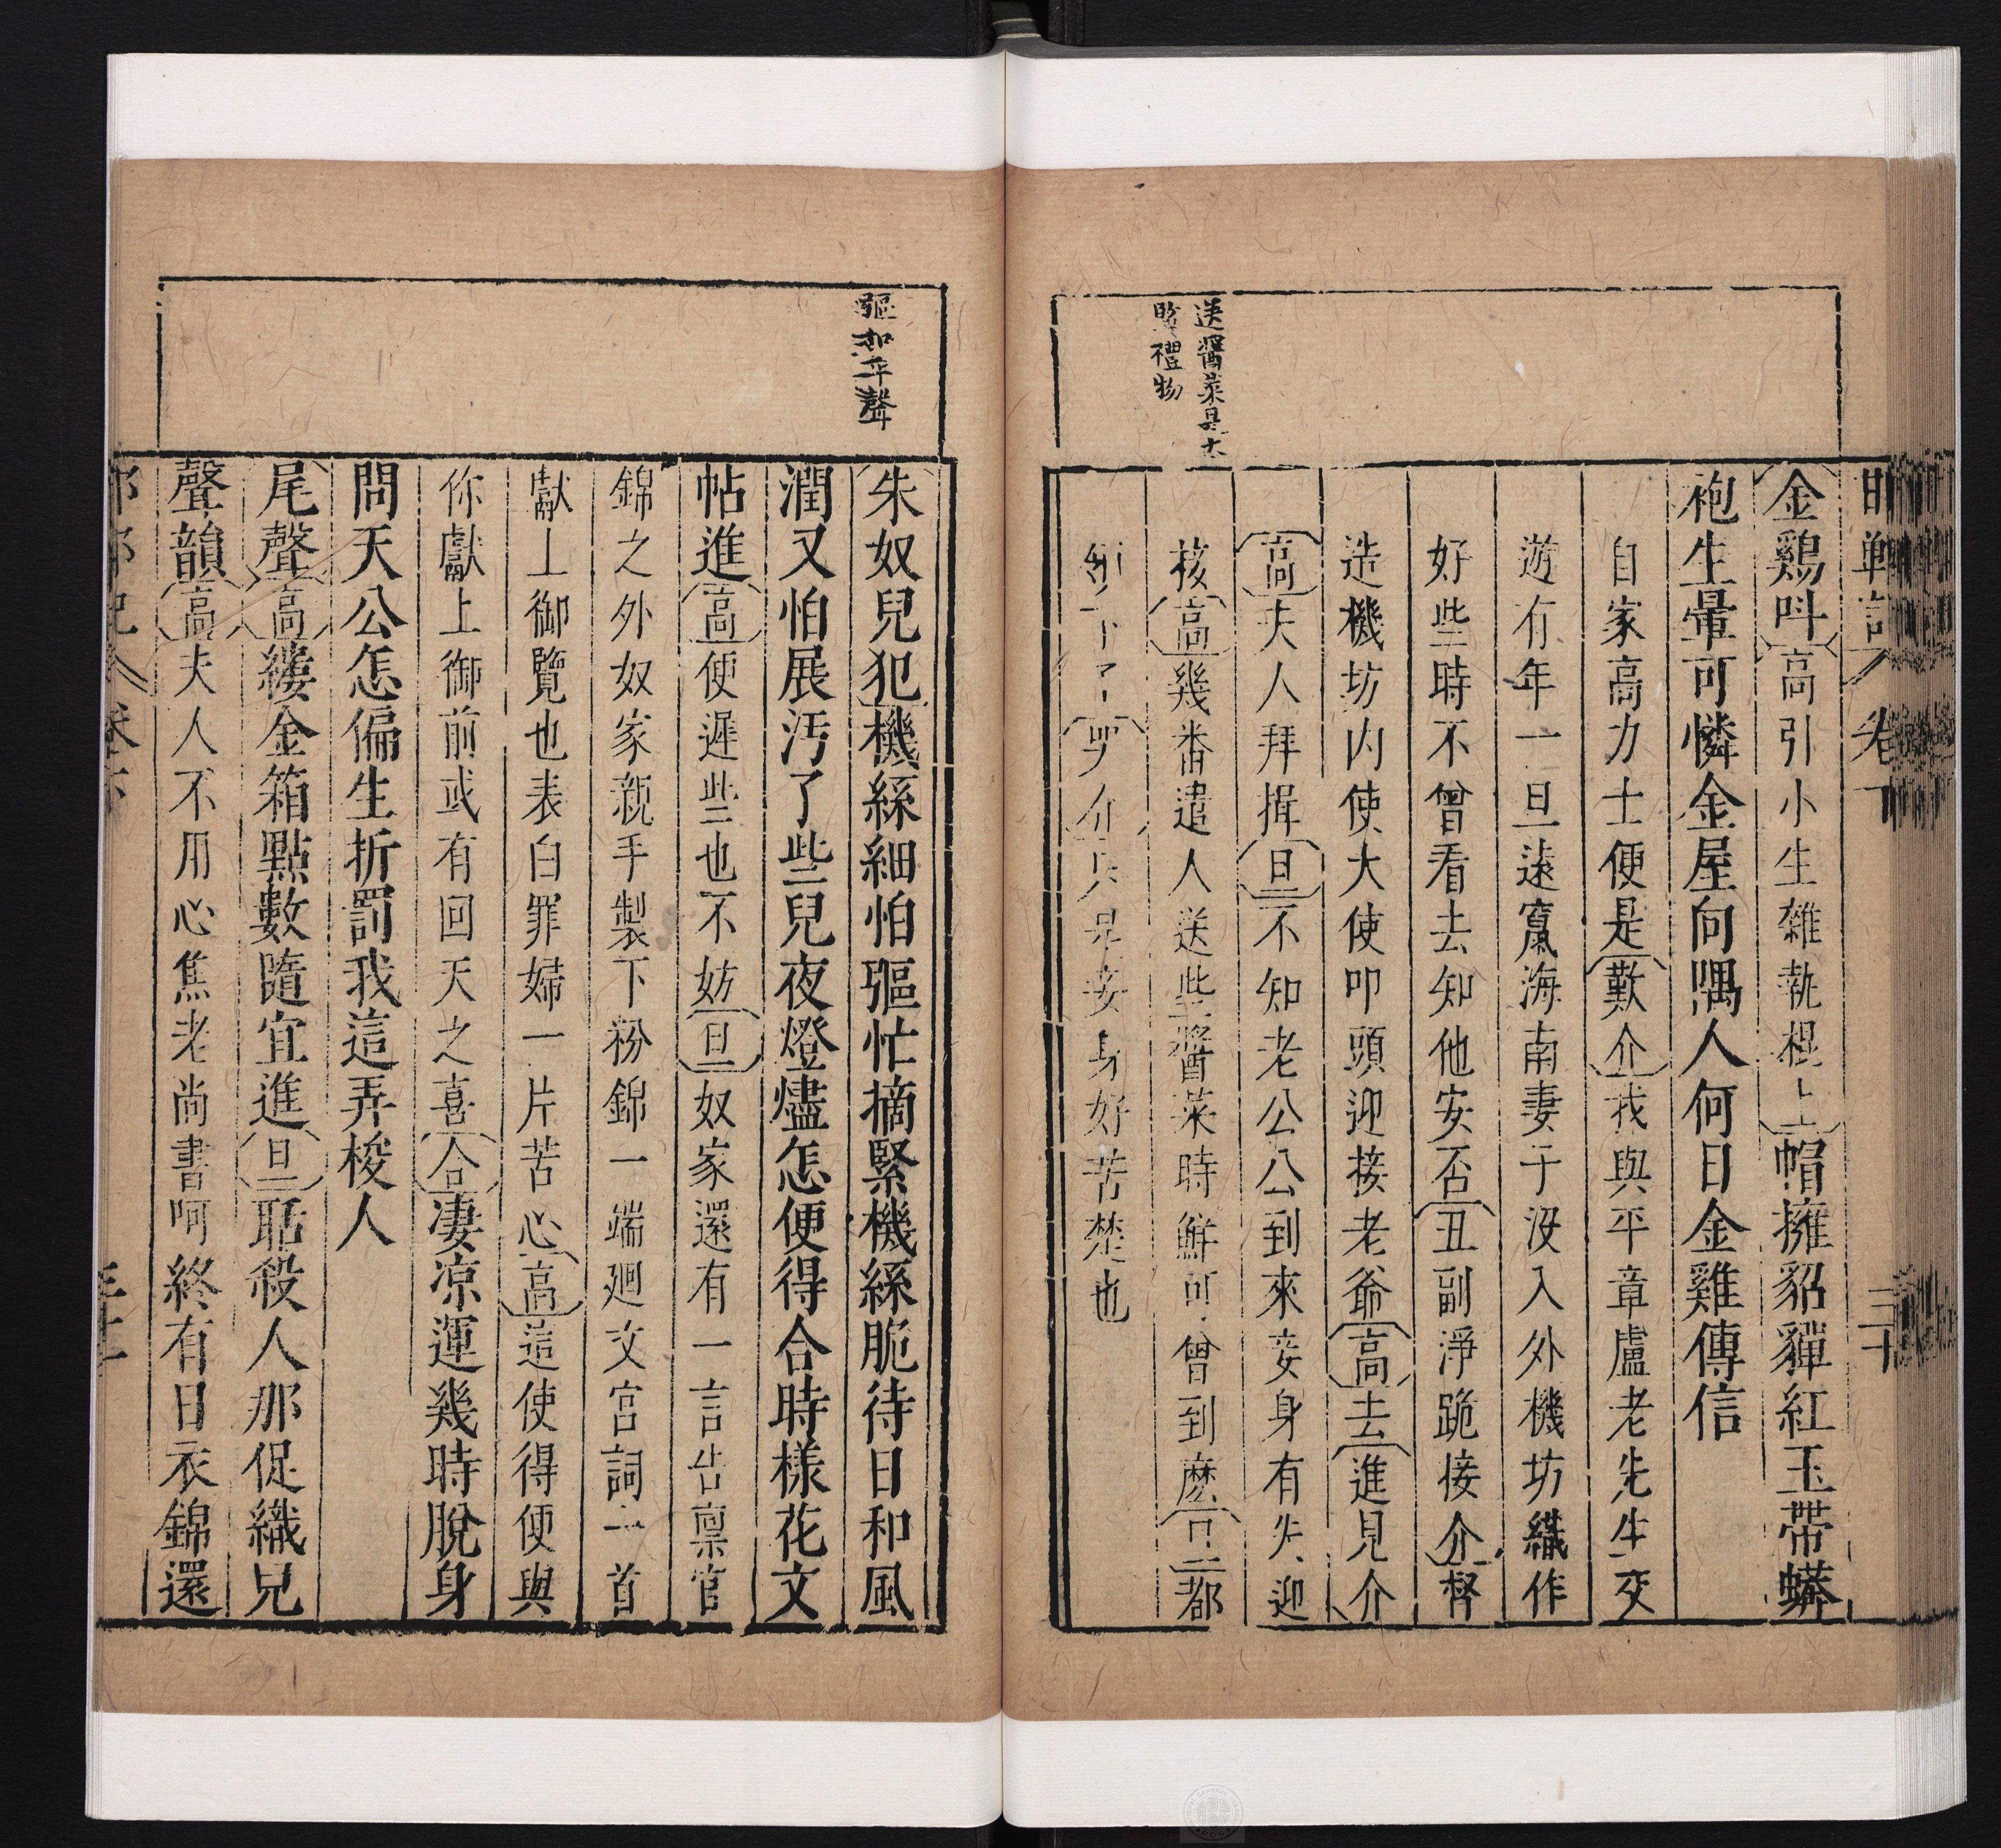 邯鄲記 卷下 三十
送醬菜是大
賢禮物
金鷄叫高引小生雜執棍上帽擁貂貚紅玉帶蟒
袍生暈可憐金屋向隅人何日金雞傳信
自家高力士便是歎介我與平章盧老先生交
遊有年一旦遠竄海南妻子沒入外機坊織作
好些時不曾看去知他安否丑副淨跪接介督
造機坊內使大使叩頭迎接老爺高去進見介
高夫人拜揖旦不知老公公到來妾身有失迎
核高幾番遣人送些醬菜時鮮可曾到麽旦都
了 介只是妾身好苦楚也
驅和平聲
朱奴兒犯機絲細怕驅忙摘緊機絲脆待日和風
潤又怕展汚了些兒夜燈燼怎便得合時樣花文
帖進高便遲些也不妨旦奴家還有一言告稟官
錦之外奴家親手製下粉錦一端廻文宮詞一首
獻上御覽也表白罪婦一片苦心高這使得便與
你獻上御前或有回天之喜合凄凉運幾時脫身
問天公怎偏生折罰我這弄梭人
尾聲高縷金箱點數隨宜進旦聒殺人那促織兒
聲韻高夫人不用心焦老尚書呵終有日衣錦還
邯鄲記 卷下 三十一